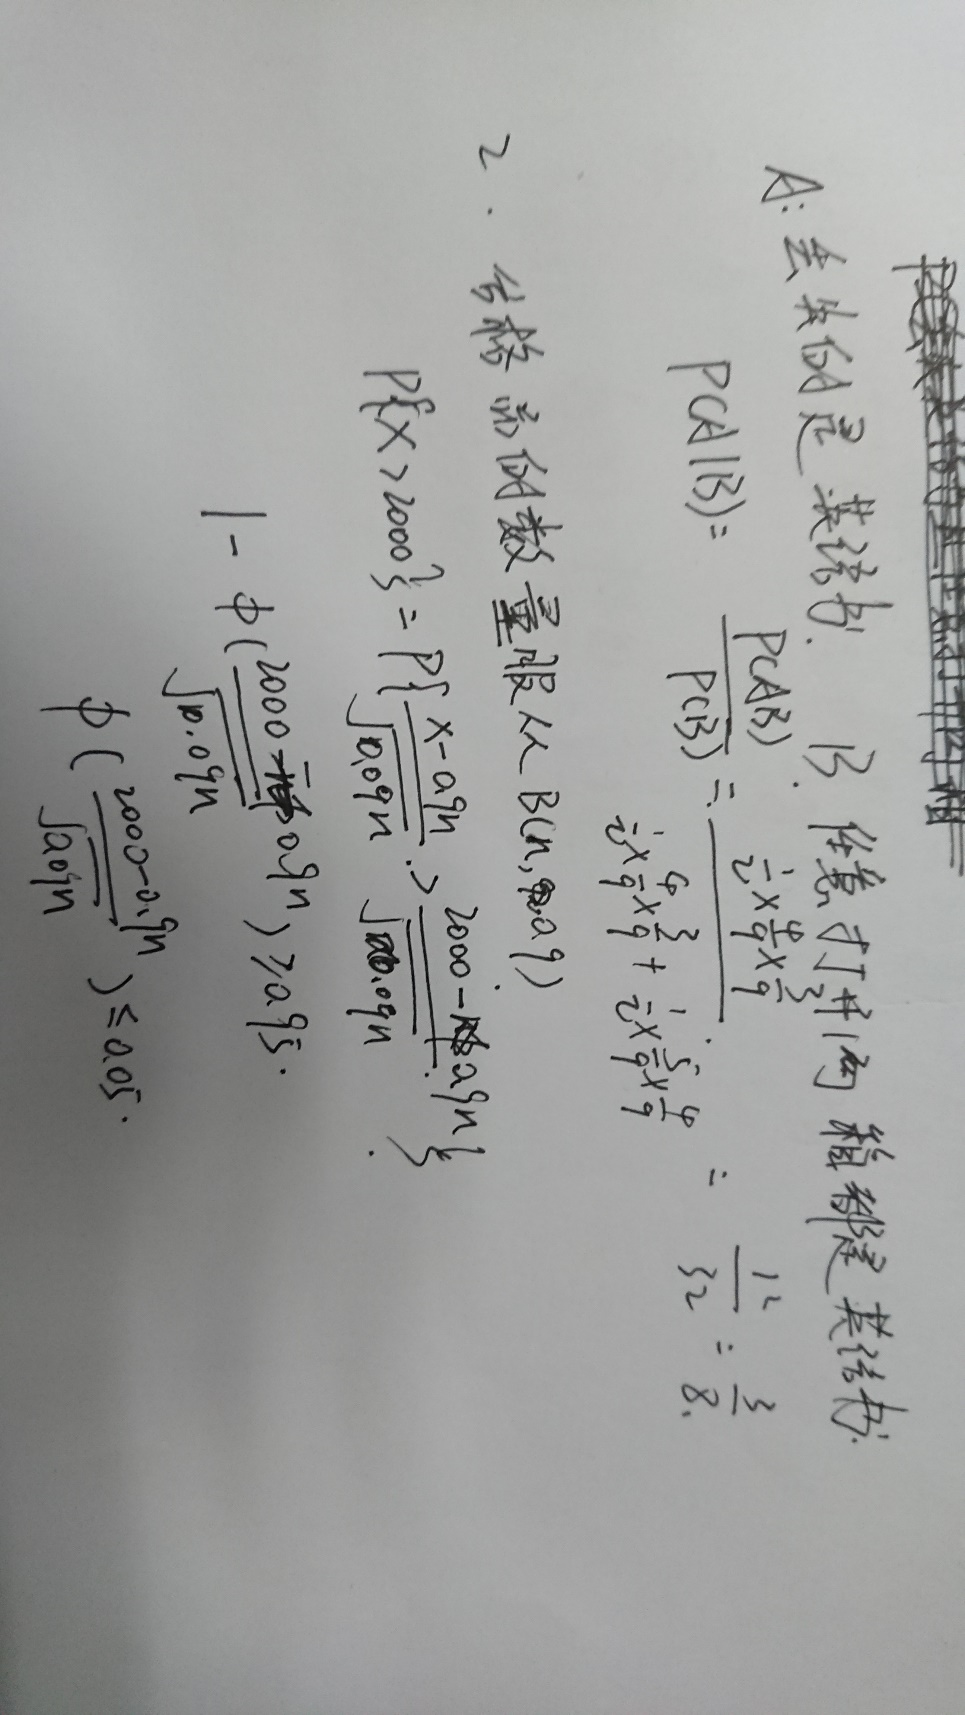 A: 丢失的是英语书. B. 任意打开两箱都是英语书.
P(A|B) = P(AB)/P(B) = (1/2×4/9×3/9)/(1/2×4/9×3/9+1/2×5/9×4/9) = 12/32 = 3/8.
2. 合格品的数量服从B(n, 0.9)
P{X>2000} = P{(X-0.9n)/√0.09n > (2000-0.9n)/√0.09n}.
1-Φ((2000-0.9n)/√0.09n) ≥0.95.
Φ((2000-0.9n)/√0.09n) ≤0.05.